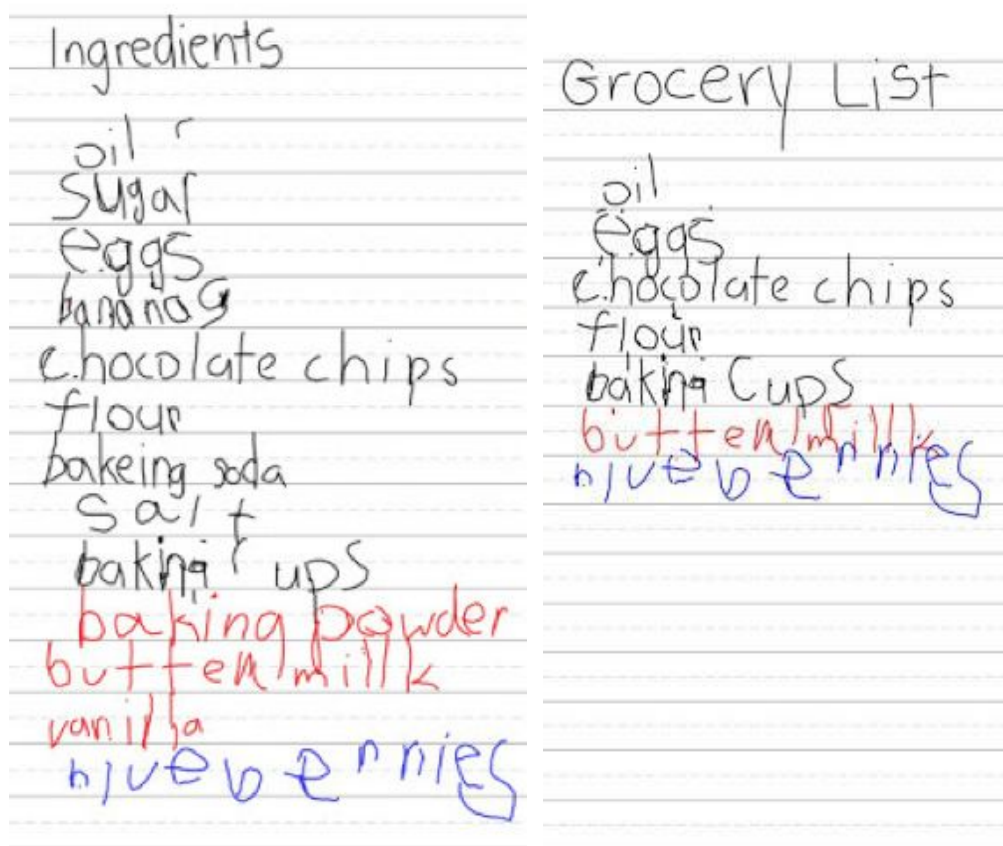 Ingredients
oil
sugar
eggs
bananas
chocolate chips
flour
bakeing soda
salt
baking cups
baking powder
buttermillk
vanilla
blueberries
Grocery List
oil
eggs
chocolate chips
flour
baking Cups
buttermillk
blueberries